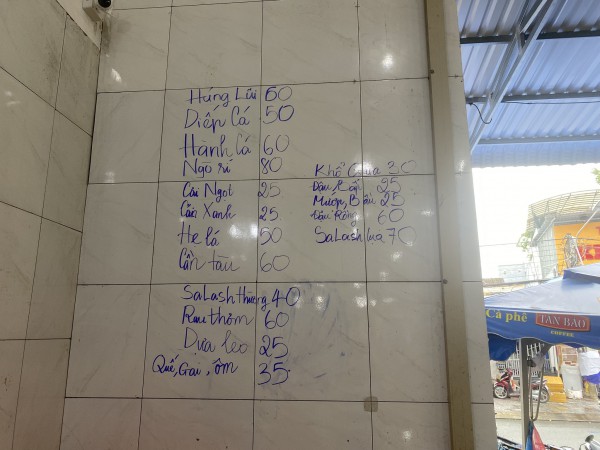 Húng Lũi 60
Diếp Cá 50
Hành Lá 60
Ngò rí 80
Cải Ngọt 25
Cải Xanh 25
Hẹ lá 50
Cần tàu 60
SaLash thường 40
Rau thơm 60
Dưa leo 25
Quế, Gai, ôm 35
Khổ Qua 20
Đậu Bắp 25
Mướp, Bầu 25
Đậu Rồng 60
SaLash lụa 70
Cà phê
TÂN BẢO
COFFEE